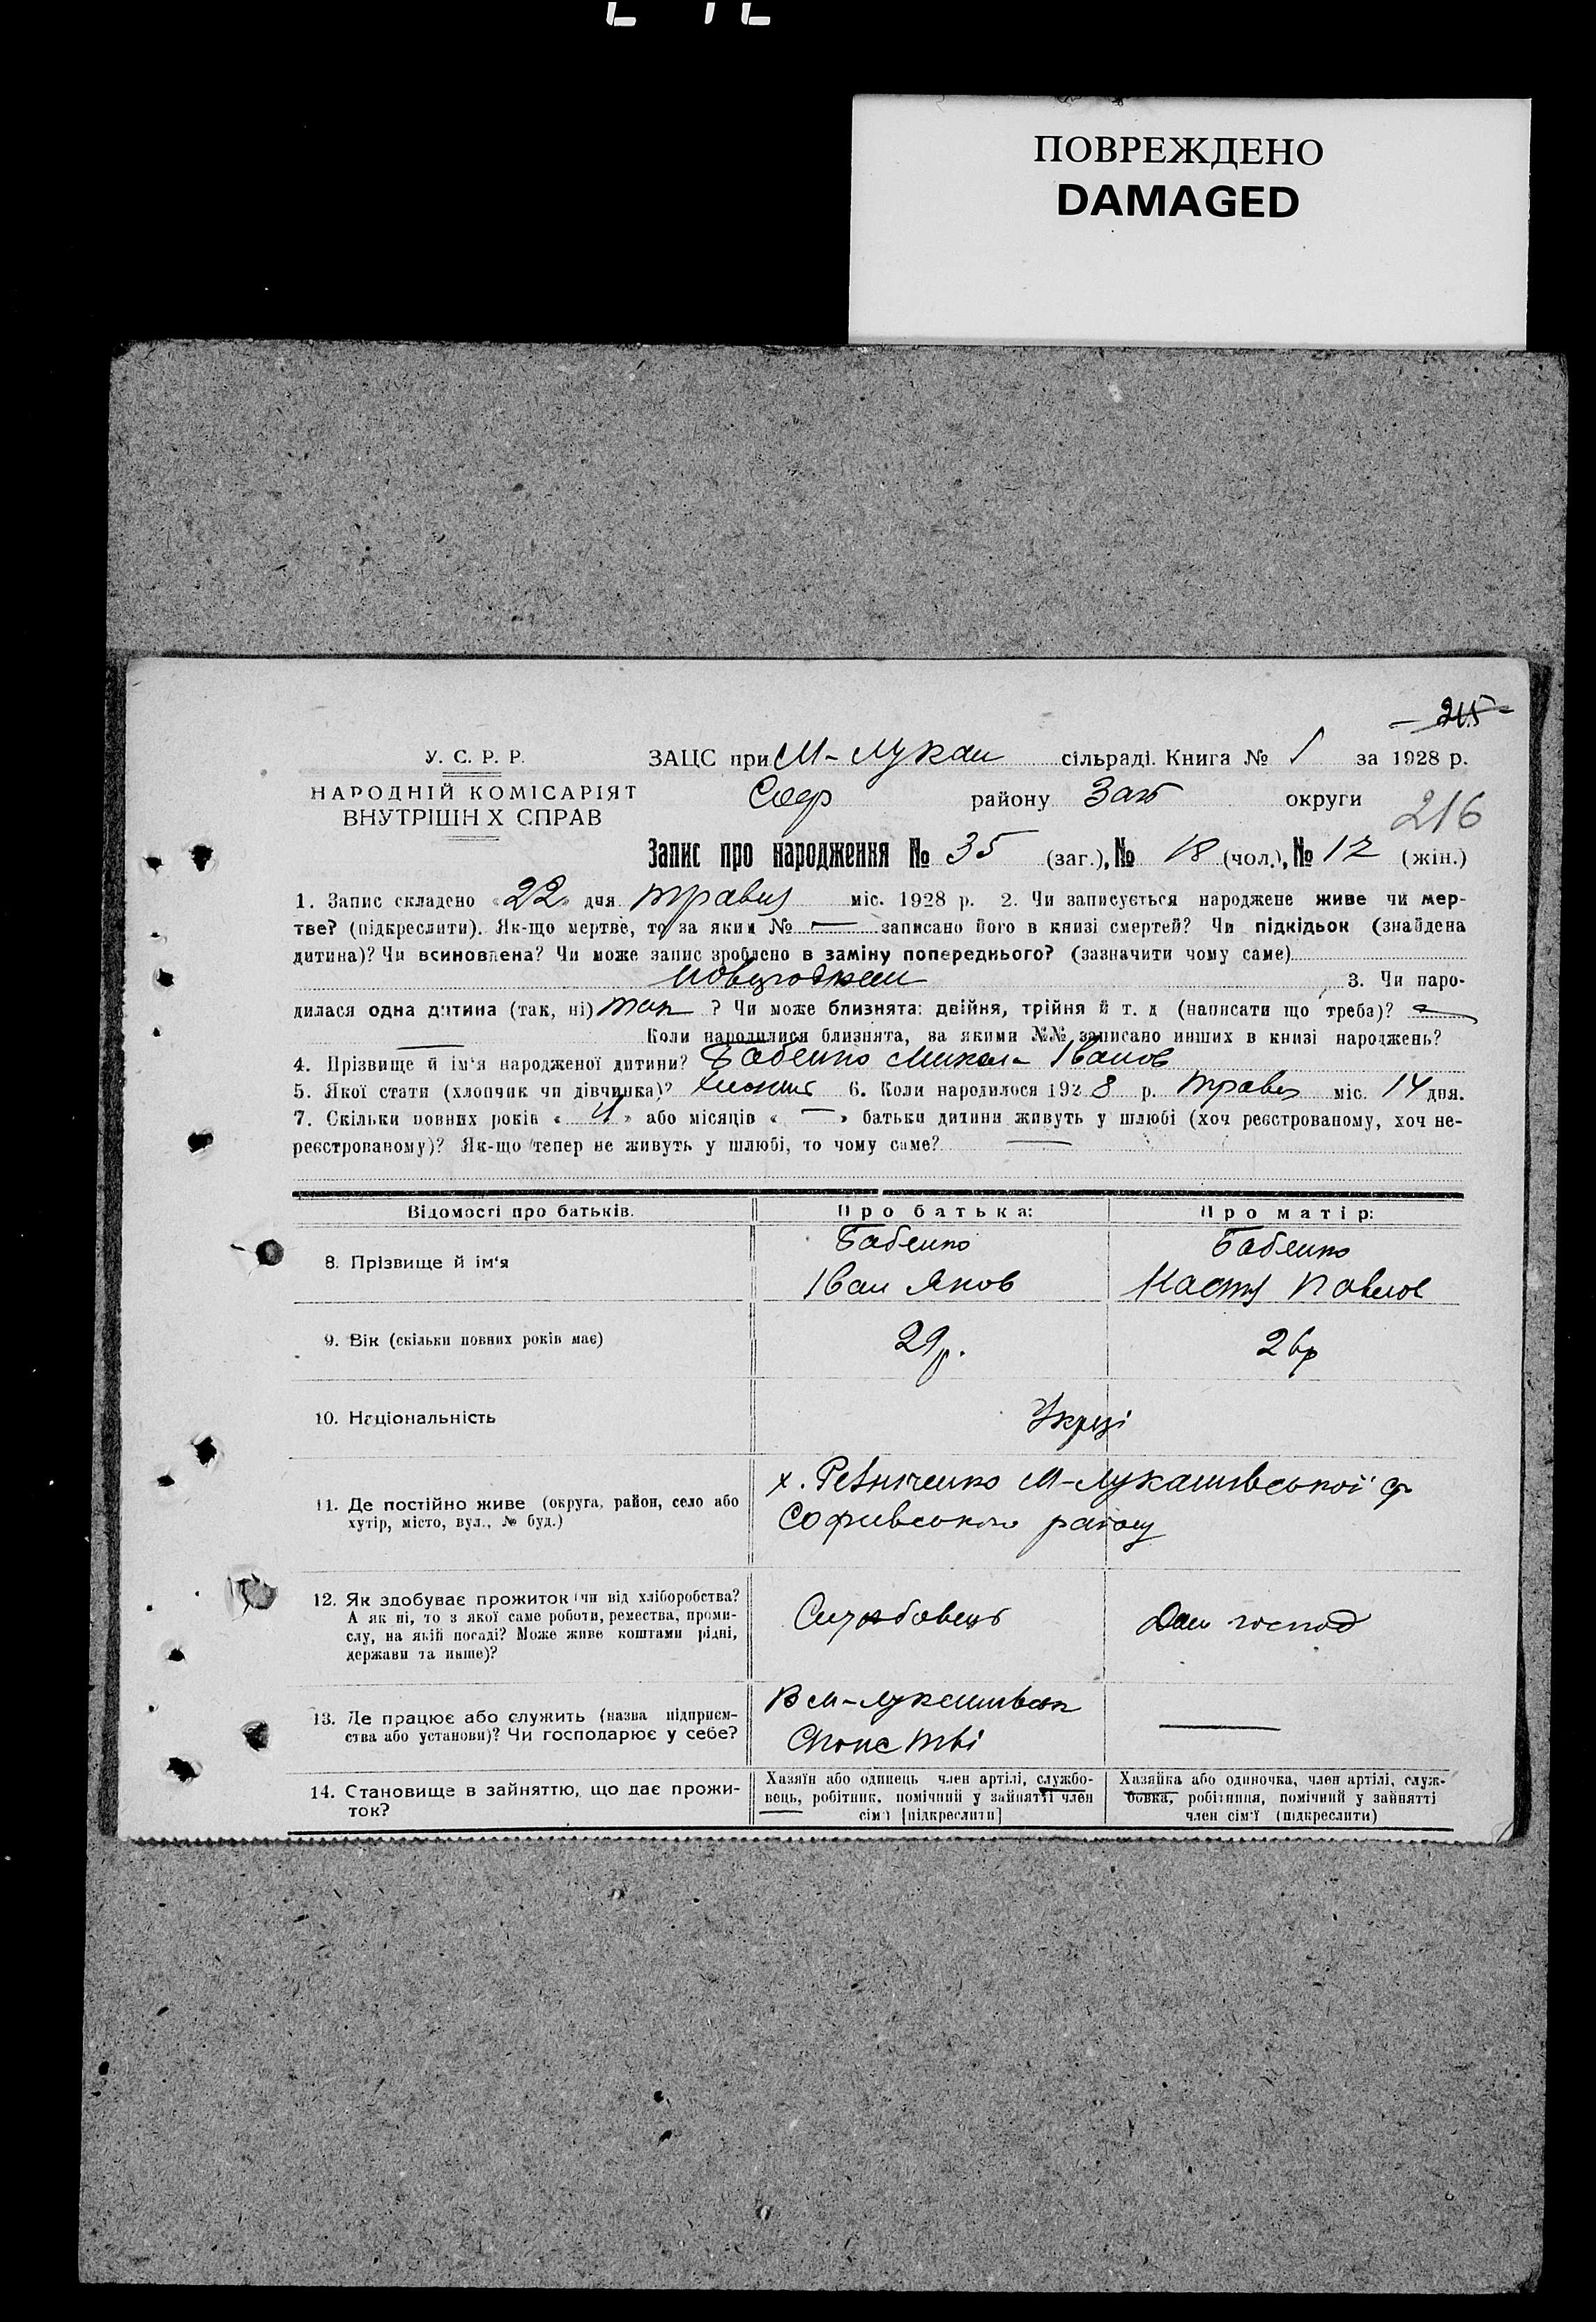 ПОВРЕЖДЕНО
DAMAGED
215
У. С. Р. Р.
НАРОДНІЙ КОМІСАРІЯТ
ВНУТРІШН Х СПРАВ
ЗАЦС при М-Лукаш сільраді. Книга № 1 за 1928 р.
Соф району Зап округи
216
Запис про народження № 35 (заг.), № 18 (чол.), № 17 (жін.)
1. Запис складено «22» дня травня міс. 1928 р. 2. Чи записується народжене живе чи мер-
тве? (підкреслити). Як-що мертве, то за яким № — записано його в книзі смертей? Чи підкідьок (знайдена
дитина)? Чи всиновлена? Чи може запис зроблено в заміну попереднього? (зазначити чому саме)
3. Чи наро-
дилася одна дитина (так, ні) так ? Чи може близнята: двійня, трійня й т. д (написати що треба)? —
— Коли народилися близнята, за якими №№ записано инших в книзі народжень?
4. Прізвище й ім'я народженої дитини? Бабенко Микола Іванов
5. Якої стати (хлопчик чи дівчинка)? хлопчик 6. Коли народилося 1928 р. травня міс. 14 дня.
7. Скільки повних років « 4 » або місяців « — » батьки дитини живуть у шлюбі (хоч реєстрованому, хоч не-
реєстрованому)? Як-що тепер не живуть у шлюбі, то чому саме? —
Відомості про батьків. Про батька: Про матір:
8. Прізвище й ім'я Бабенко Іван Яков Бабенко Настя Павлов
9. Вік (скільки повних років має) 29 р. 26 р
10. Національність Укрці
11. Де постійно живе (округа, район, село або
хутір, місто, вул., № буд.)
х. Резніченко М-Лукашівської с/р
Софиївського району
12. Як здобуває прожиток (чи від хліборобства?
А як ні, то з якої саме роботи, ремества, проми-
слу, на якій посаді? Може живе коштами рідні,
держави та инше)?
Службовець Дом господ
13. Де працює або служить (назва підприєм-
ства або установи)? Чи господарює у себе?
В М-Лукашівськ
—
14. Становище в зайняттю, що дає прожи-
ток?
Хазяїн або одинець член артілі, службо-
вець, робітник, помічний у зайнятті член
сім'ї [підкреслити]
Хазяйка або одиночка, член артілі, служ-
бовка, робітниця, помічний у зайнятті
член сім'ї (підкреслити)